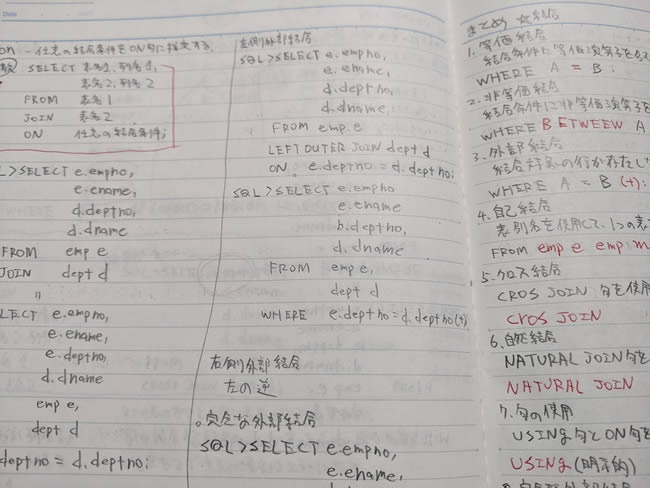 on - 任意の結合条件をON句に指定する.
SELECT 表名1.列名1,
表名2.列名2
FROM 表名1
JOIN 表名2
ON 任意の結合条件;
L>SELECT e.empno,
e.ename,
d.deptno,
d.dname
FROM emp e
JOIN dept d
"
LECT e.empno,
e.ename,
e.deptno,
d.dname
emp e,
dept d
deptno = d.deptno;
左側外部結合
SQL>SELECT e.empno,
e.ename,
d.deptno,
d.dname,
FROM emp e
LEFT OUTER JOIN dept d
ON e.deptno = d.deptno;
SQL>SELECT e.empno
e.ename
b.deptno,
d.dname
FROM emp e,
dept d
WHERE e.deptno = d.deptno(+)
右側外部結合
左の逆
。完全な外部結合
SQL>SELECT e.empno,
e.ename,
まとめ ☆結合
1. 等価結合
結合条件に等価演算子を
WHERE A = B;
2. 非等価結合
結合条件に非等価演算子を
WHERE BETWEEW A
3. 外部結合
WHERE A = B (+);
4. 自己結合
表別名を使用して、1つの表
FROM emp e emp m
5. クロス結合
CROS JOIN 句を使用
CROS JOIN
6. 自然結合
NATURAL JOIN句を
NATURAL JOIN
7. 句の使用
USING句とON句を
USING(明示的)